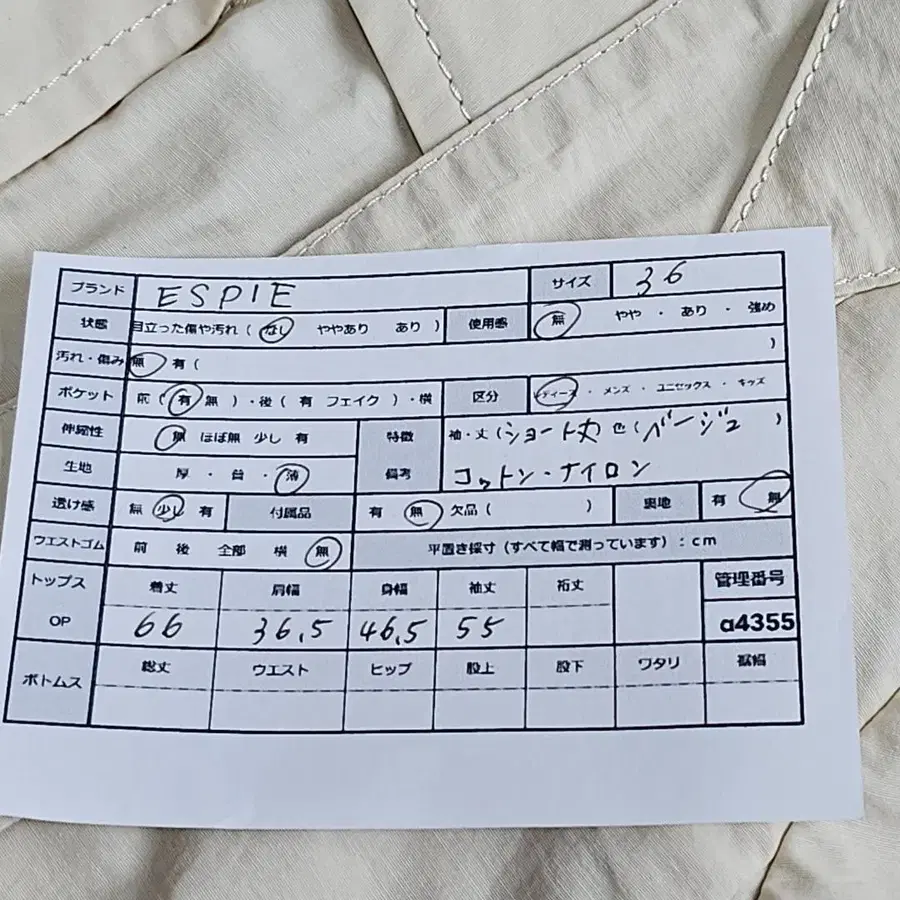 ブランド ESPIE サイズ 36
状態 目立った傷や汚れ ( なし ややあり あり ) 使用感 無 やや ・ あり ・ 強め
汚れ・傷み 無 有 ( )
ポケット 前 ( 有 無 ) ・後 ( 有 フェイク ) ・横 区分 レディース ・ メンズ ・ ユニセックス ・ キッズ
伸縮性 無 ほぼ無 少し 有 特徴 袖・丈 (ショート丈 色 (ベージュ )
生地 厚 ・ 普 ・ 薄 備考 コットン・ナイロン
透け感 無 少し 有 付属品 有 無 欠品 ( ) 裏地 有 無
ウエストゴム 前 後 全部 横 無 平置き採寸 (すべて幅で測っています) : cm
トップス 着丈 肩幅 身幅 袖丈 裄丈 管理番号
OP 66 36.5 46.5 55 a4355
ボトムス 総丈 ウエスト ヒップ 股上 股下 ワタリ 裾幅